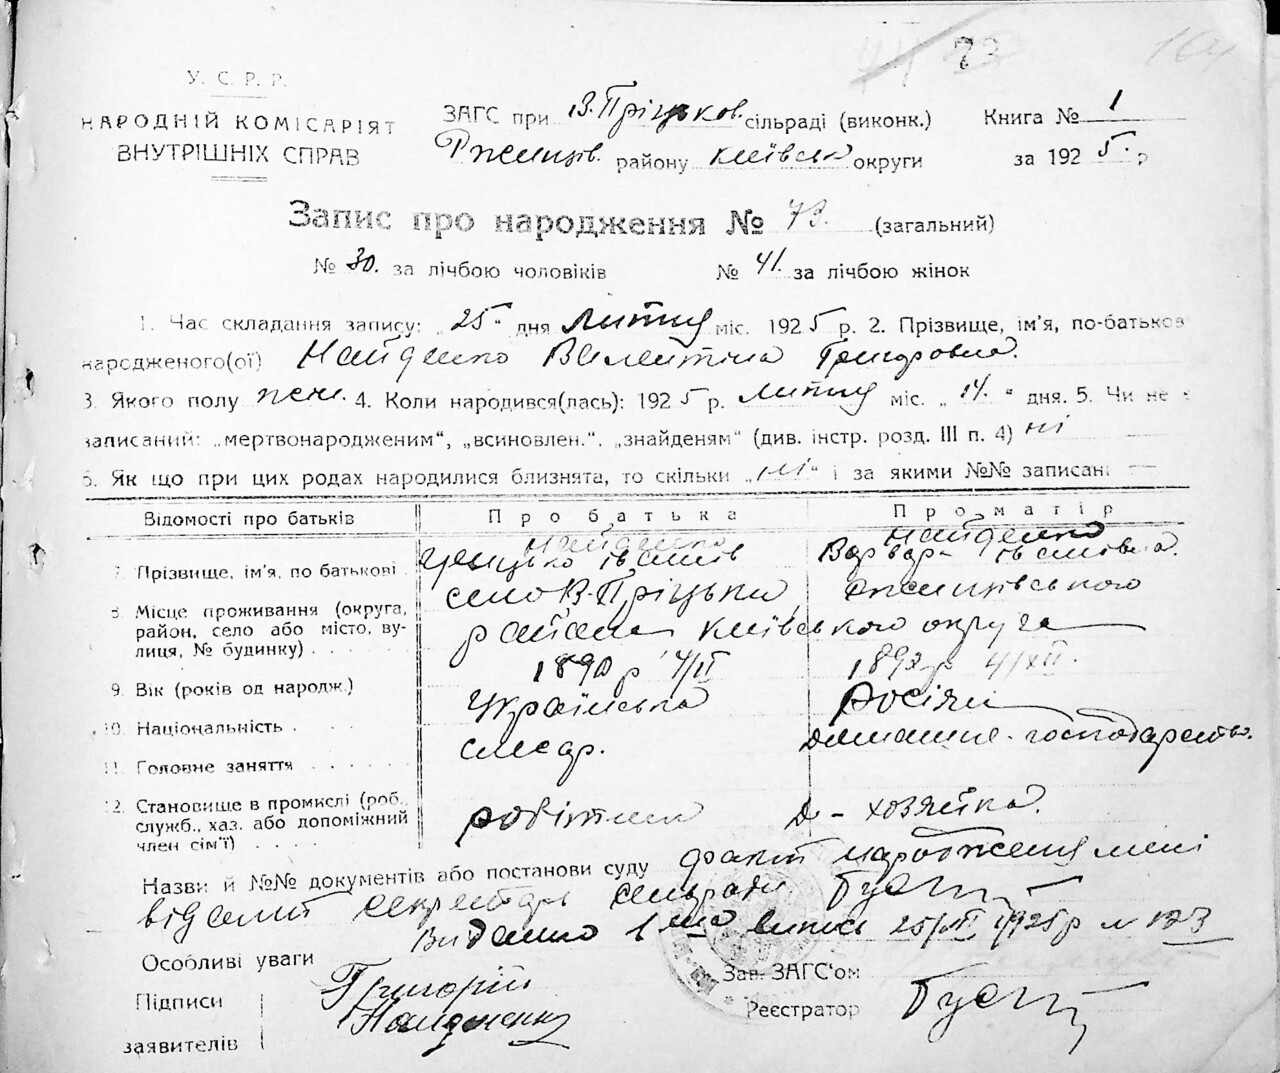 73 164
У. С. Р. Р.
НАРОДНІЙ КОМІСАРІЯТ
ВНУТРІШНІХ СПРАВ
ЗАГС при В. Пріцьков. сільраді (виконк.)
Книга № 1
Ржищів. району Київськ округи
за 1925 р
Запис про народження № 73. (загальний)
№ 30. за лічбою чоловіків № 41. за лічбою жінок
1. Час складання запису: „25“ дня лютня міс. 1925 р. 2. Прізвище, ім'я, по-батькові
народженого(ої) Найденко Валентіна Григоровна.
3. Якого полу жен. 4. Коли народився(лась): 1925 р. лютня міс. „14.“ дня. 5. Чи не є
записаний: „мертвонародженим“, „всиновлен.“, „знайденям“ (див. інстр. розд. III п. 4) ні
6. Як що при цих родах народилися близнята, то скільки „ні“ і за якими №№ записані —
Відомості про батьків Про батька Про матір
7. Прізвище, ім'я, по батькові Найденко Грицько Іванів Найденко Варвара Івановна.
8. Місце проживання (округа, село В-Пріцьки Ржищівського
район, село або місто, ву- району Київського округа
лиця, № будинку)
9. Вік (років од народж.) 1890 р 4/II 1892 р 4/XII.
10. Національність Українська Росіян
11. Головне заняття слюсар. Домашнє-господарство.
12. Становище в промислі (роб., робітник Д - хозяйка.
служб., хаз. або допоміжний
член сім'ї)
Назви й №№ документів або постанови суду факт народження мені
відомий секретарь сельради
Видано 1 1925 р № 173
Особливі уваги
Зав. ЗАГС'ом
Підписи Григорій
Реєстратор
заявителів Найденко